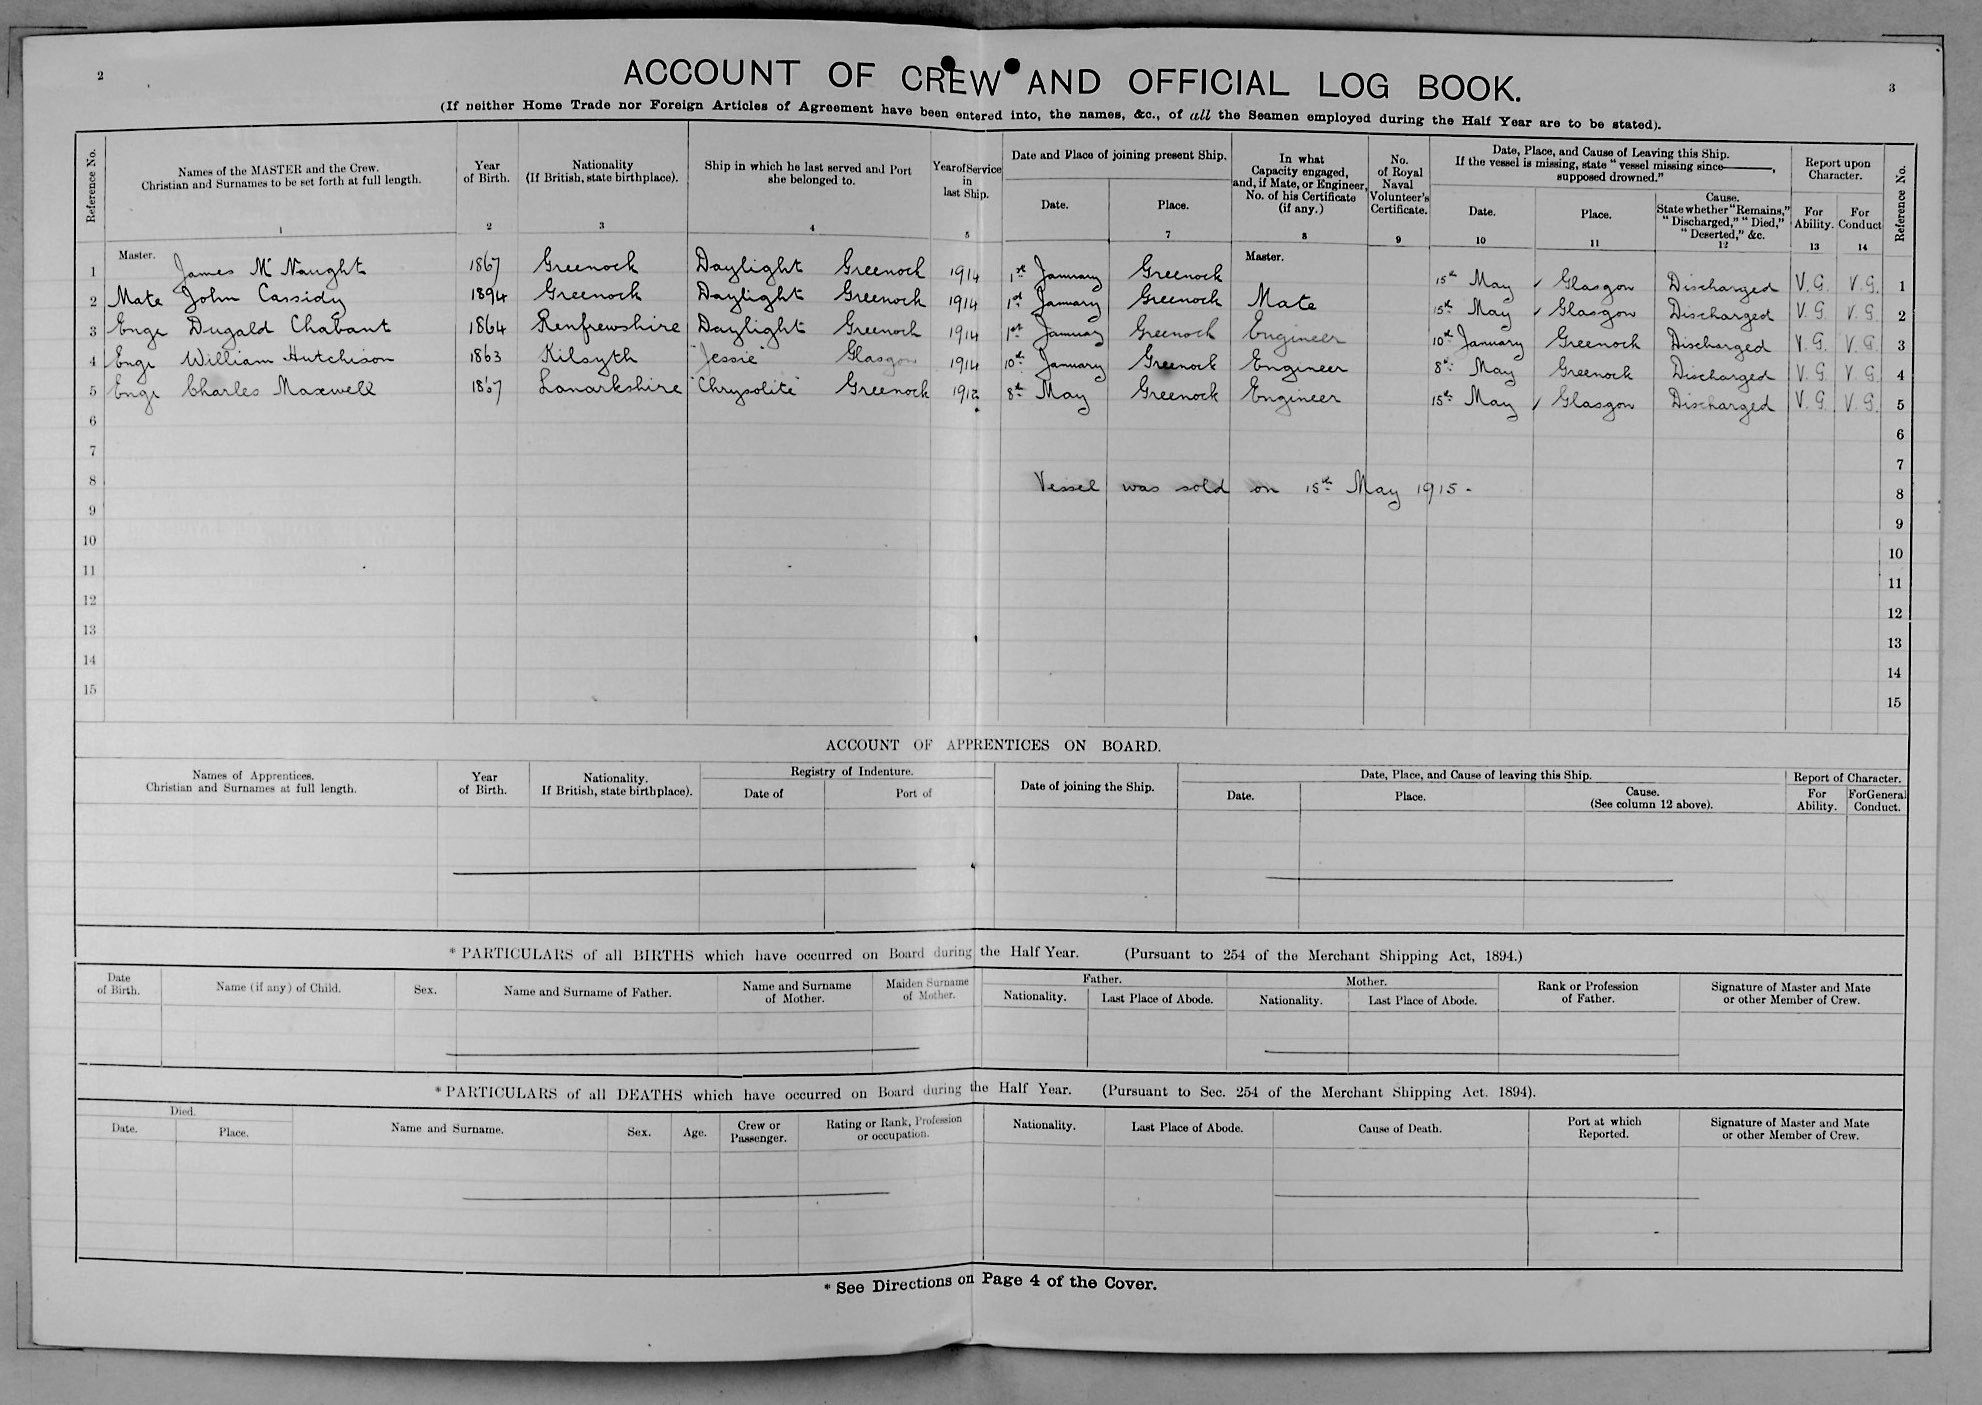 2
ACCOUNT OF CREW AND OFFICIAL LOG BOOK.
3
(If neither Home Trade nor Foreign Articles of Agreement have been entered into, the names, &c., of all the Seamen employed during the Half Year are to be stated).
Reference No.
Names of the MASTER and the Crew.
Christian and Surnames to be set forth at full length.
1
Year
of Birth.
2
Nationality
(If British, state birthplace).
3
Ship in which he last served and Port
she belonged to.
4
Year of Service
in
last Ship.
5
Date and Place of joining present Ship.
Date.
Place.
7
In what
Capacity engaged,
and, if Mate, or Engineer,
No. of his Certificate
(if any.)
8
No.
of Royal
Naval
Volunteer's
Certificate.
9
Date, Place, and Cause of Leaving this Ship.
If the vessel is missing, state "vessel missing since———,
supposed drowned."
Date.
10
Place.
11
Cause.
State whether "Remains,"
"Discharged," "Died,"
"Deserted," &c.
12
Report upon
Character.
For
Ability.
13
For
Conduct
14
Reference No.
1 Master. James Mc Naught 1867 Greenock Daylight Greenock 1914 1st January Greenock Master. 15th May ✓ Glasgow Discharged V.G. V.G. 1
2 Mate John Cassidy 1894 Greenock Daylight Greenock 1914 1st January Greenock Mate 15th May ✓ Glasgow Discharged V.G. V.G. 2
3 Engr Dugald Chabant 1864 Renfrewshire Daylight Greenock 1914 1st January Greenock Engineer 10th January Greenock Discharged V.G. V.G. 3
4 Engr William Hutchison 1863 Kilsyth "Jessie" Glasgow 1914 10th January Greenock Engineer 8th May Greenock Discharged V.G. V.G. 4
5 Engr Charles Maxwell 1867 Lanarkshire "Chrysolite" Greenock 1912 8th May Greenock Engineer 15th May ✓ Glasgow Discharged V.G. V.G. 5
6 6
7 7
8 Vessel was sold on 15th May 1915 - 8
9 9
10 10
11 11
12 12
13 13
14 14
15 15
ACCOUNT OF APPRENTICES ON BOARD.
Names of Apprentices.
Christian and Surnames at full length.
Year
of Birth.
Nationality.
If British, state birthplace).
Registry of Indenture.
Date of
Port of
Date of joining the Ship.
Date, Place, and Cause of leaving this Ship.
Date.
Place.
Cause.
(See column 12 above).
Report of Character.
For
Ability.
For General
Conduct.
* PARTICULARS of all BIRTHS which have occurred on Board during the Half Year. (Pursuant to 254 of the Merchant Shipping Act, 1894.)
Date
of Birth.
Name (if any) of Child.
Sex.
Name and Surname of Father.
Name and Surname
of Mother.
Maiden Surname
of Mother.
Father.
Nationality.
Last Place of Abode.
Mother.
Nationality.
Last Place of Abode.
Rank or Profession
of Father.
Signature of Master and Mate
or other Member of Crew.
* PARTICULARS of all DEATHS which have occurred on Board during the Half Year. (Pursuant to Sec. 254 of the Merchant Shipping Act. 1894).
Died.
Date.
Place.
Name and Surname.
Sex.
Age.
Crew or
Passenger.
Rating or Rank, Profession
or occupation.
Nationality.
Last Place of Abode.
Cause of Death.
Port at which
Reported.
Signature of Master and Mate
or other Member of Crew.
* See Directions on Page 4 of the Cover.